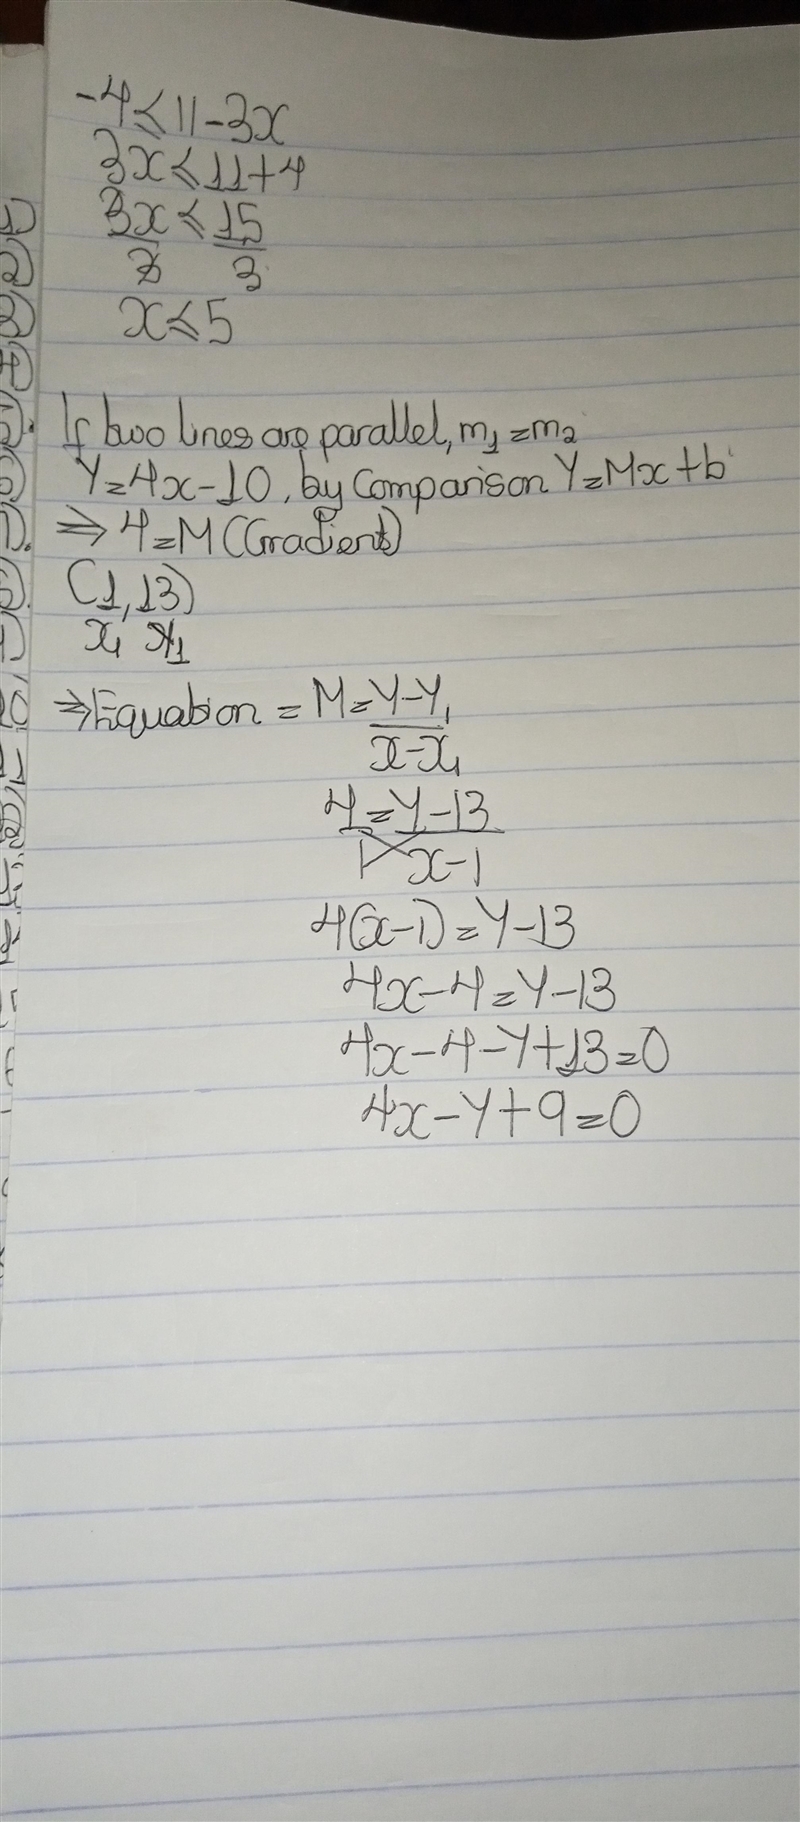 -4 ≤ 11 - 3x
3x ≤ 11 + 4
3x ≤ 15
3 3
x ≤ 5
If two lines are parallel, m₁ = m₂
Y = 4x - 10, by Comparison Y = Mx + b
⇒ 4 = M (Gradient)
(1, 13)
x₁ y₁
⇒ Equation = M = Y - Y₁
x - x₁
4 = Y - 13
1 x - 1
4(x - 1) = Y - 13
4x - 4 = Y - 13
4x - 4 - Y + 13 = 0
4x - Y + 9 = 0